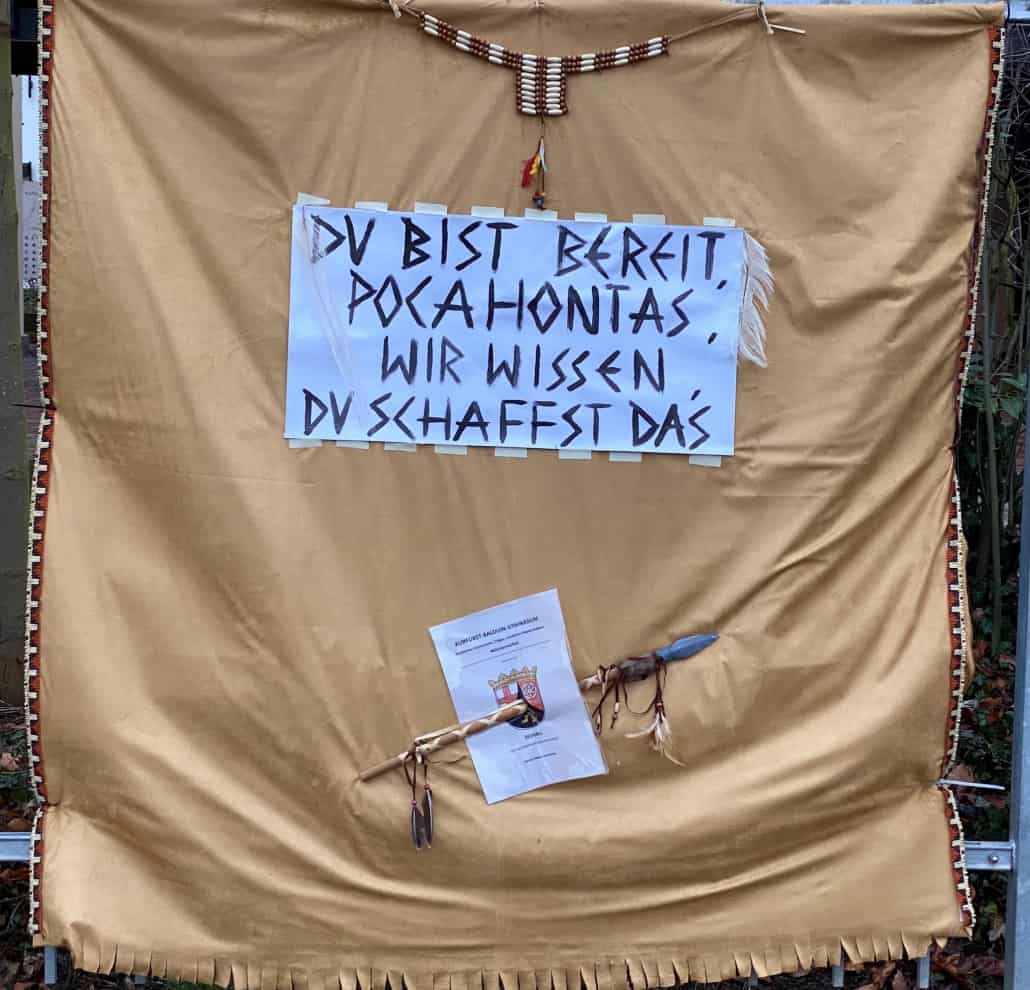 DU BIST BEREIT,
POCAHONTAS,
WIR WISSEN
DU SCHAFFST DAS
KURFÜRST-BALDUIN-GYMNASIUM